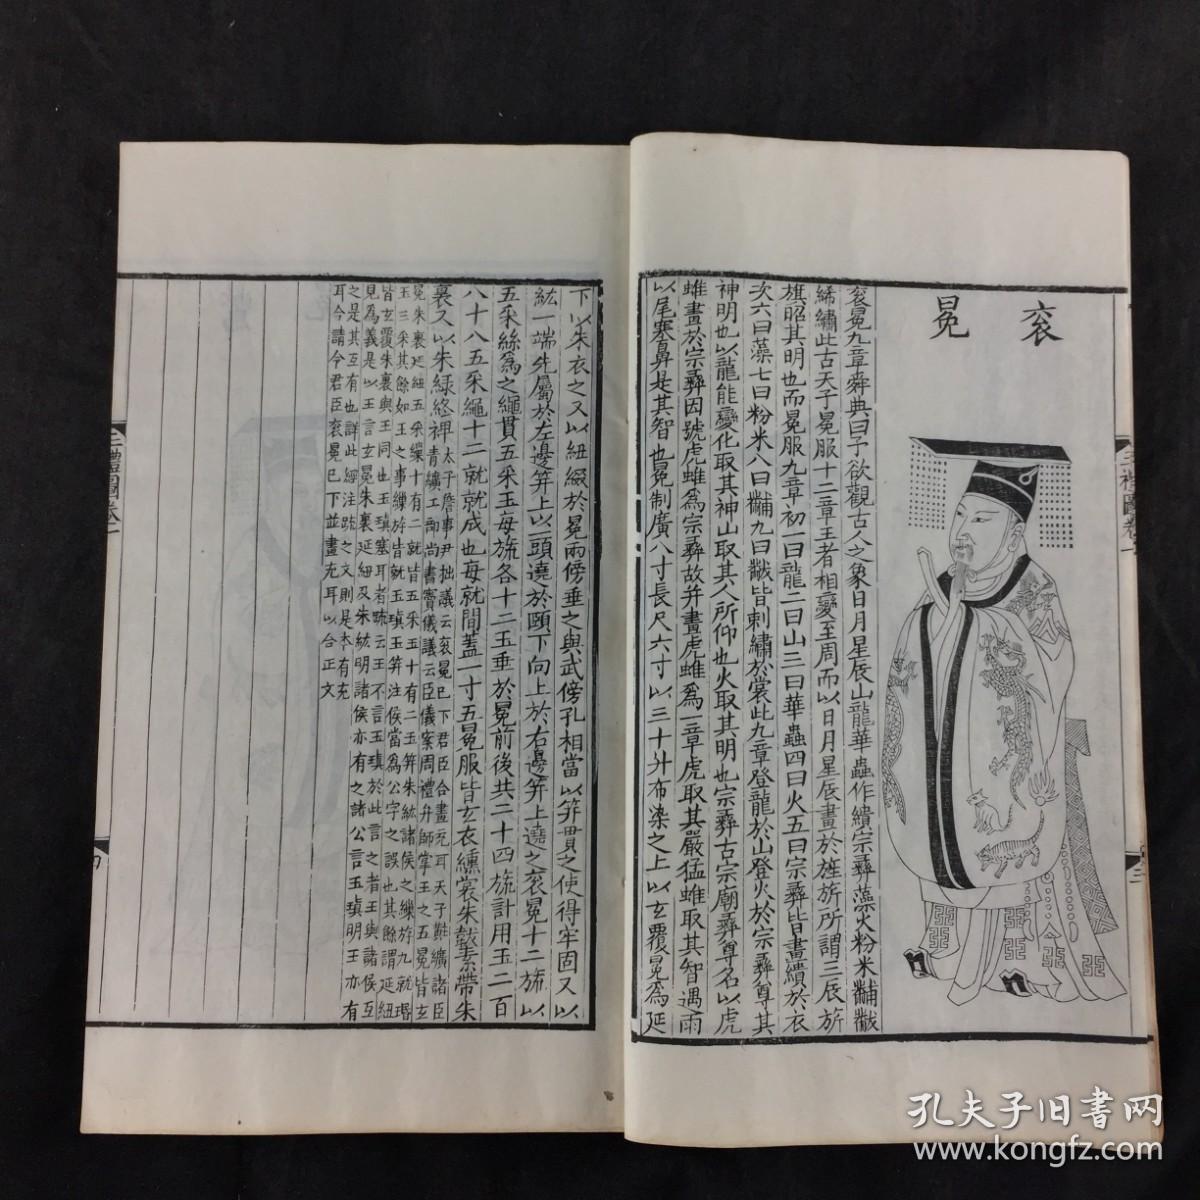 袞冕
袞冕九章舜典曰予欲觀古人之象日月星辰山龍華蟲作繢宗彝藻火粉米黼黻
絺繡此古天子冕服十二章王者相變至周而以日月星辰畫於旌旂所謂三辰旂
旗昭其明也而冕服九章初一曰龍二曰山三曰華蟲四曰火五曰宗彝皆畫繢於衣
次六曰藻七曰粉米八曰黼九曰黻皆刺繡於裳此九章登龍於山登火於宗彝尊其
神明也以龍能變化取其神山取其人所仰也火取其明也宗彝古宗廟彝尊名以虎
蜼畫於宗彝因號虎蜼為宗彝故并畫虎蜼為一章虎取其嚴猛蜼取其智遇雨
以尾塞鼻是其智也冕制廣八寸長尺六寸以三十升布染之上以玄覆冕為延
三禮圖卷一
三
下以朱衣之又以紐綴於冕兩傍垂之與武傍孔相當以笄貫之使得牢固又以
紘一端先屬於左邊笄上以一頭遶於頤下向上於右邊笄上遶之袞冕十二旒以
五采絲為之繩貫五采玉每旒各十二玉垂於冕前後共二十四旒計用玉二百
八十八五采繩十二就就成也每就間蓋一寸五冕服皆玄衣纁裳朱韍素帶朱
裏又以朱綠終裨青纊
太子詹事尹拙議云袞冕已下君臣合畫充耳天子黈纊諸臣
工部尚書竇儀議云臣儀案周禮弁師掌王之五冕皆玄
冕朱裏延紐五采繅十有二就皆五采玉十有二玉笄朱紘諸侯之繅斿九就瑉
玉三采其餘如王之事繅斿皆就玉瑱玉笄注侯當為公字之誤也其餘謂延紐
皆玄覆朱裏與王同也玉瑱塞耳者疏云王不言玉瑱於此言之者王與諸侯互
見為義是以王言玄冕朱裏延紐及朱紘明諸侯亦有之諸公言玉瑱明王亦有
之是其互有也詳此經注疏之文則是本有充
耳今請令君臣袞冕已下並畫充耳以合正文
三禮圖卷一
四
孔夫子旧书网
www.kongfz.com